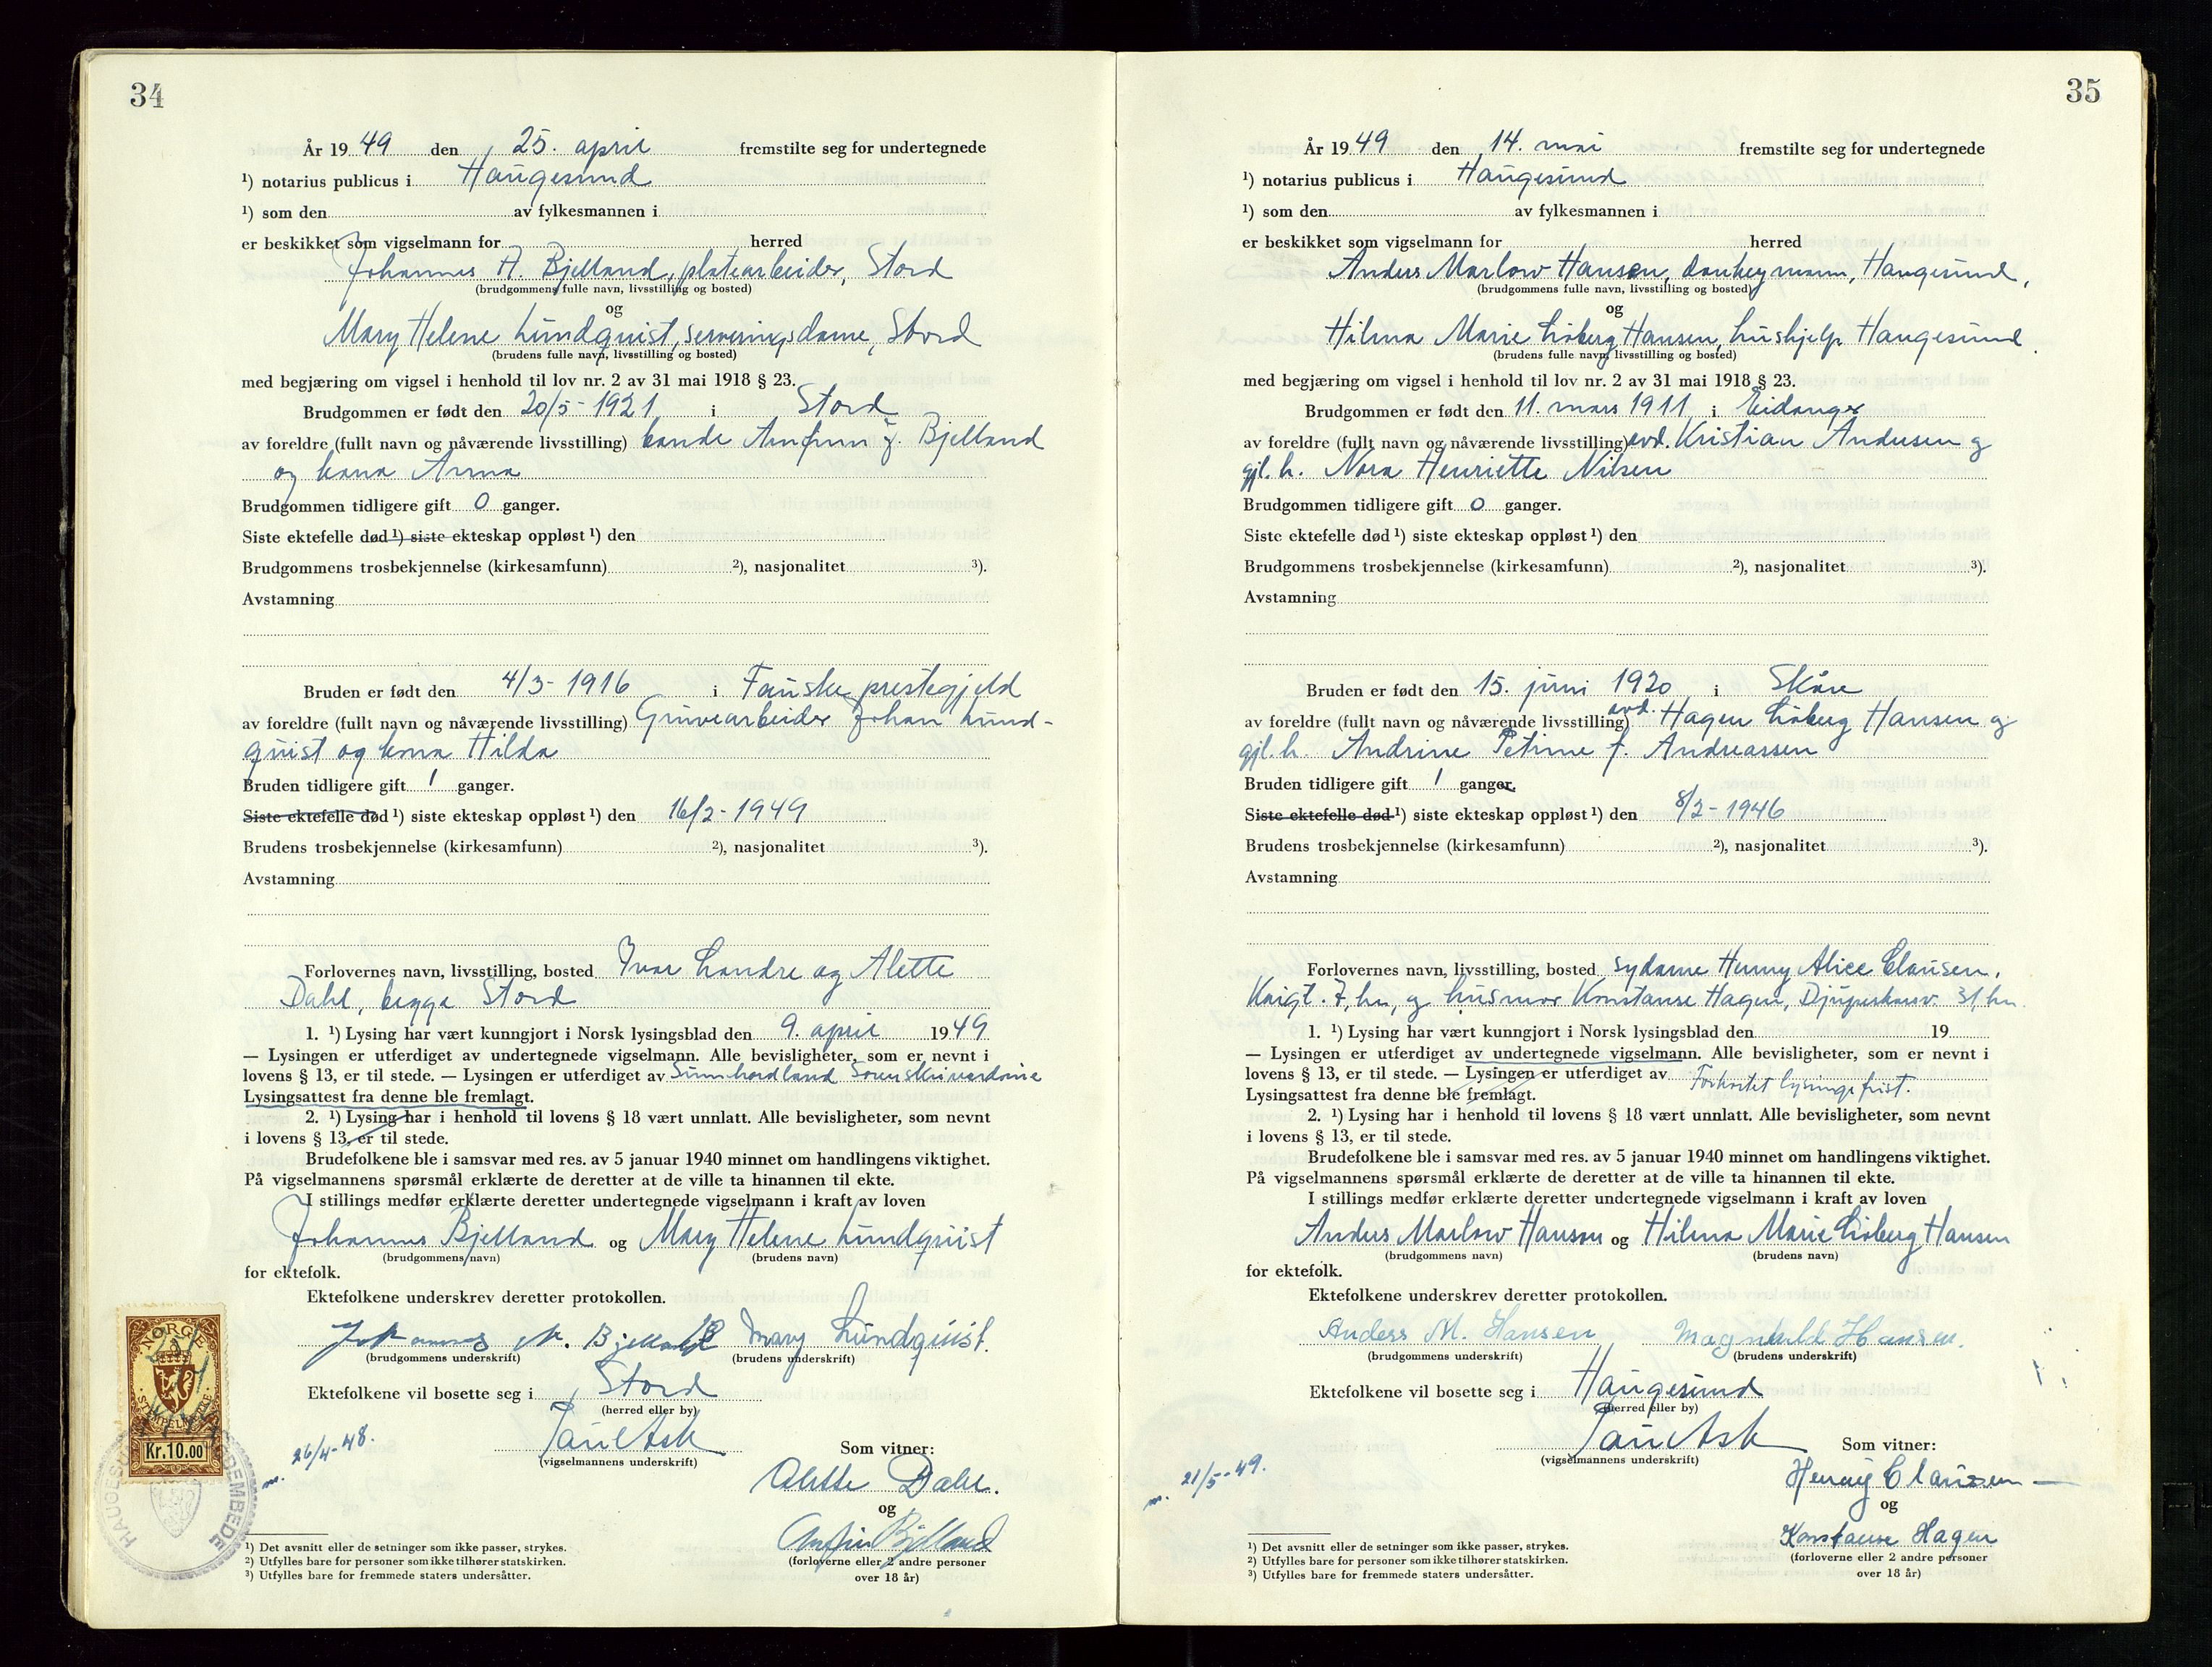 34
År 19 49 den 25. april fremstilte seg for undertegnede
¹) notarius publicus i Haugesund
¹) som den av fylkesmannen i
er beskikket som vigselmann for herred
Johannes A. Bjelland, platearbeider, Stord
(brudgommens fulle navn, livsstilling og bosted)
og
Mary Helene Lundquist, serveringsdame, Stord
(brudens fulle navn, livsstilling og bosted)
med begjæring om vigsel i henhold til lov nr. 2 av 31 mai 1918 § 23.
Brudgommen er født den 20/5-1921 i Stord
av foreldre (fullt navn og nåværende livsstilling) bonde Arnfinn J. Bjelland
og kona Anna
Brudgommen tidligere gift 0 ganger.
Siste ektefelle død ¹) siste ekteskap oppløst ¹) den
Brudgommens trosbekjennelse (kirkesamfunn) ²), nasjonalitet ³).
Avstamning
Bruden er født den 4/3-1916 i Fauske prestegjeld
av foreldre (fullt navn og nåværende livsstilling) Gruvearbeider Johan Lund-
quist og kona Hilda
Bruden tidligere gift 1 ganger.
Siste ektefelle død ¹) siste ekteskap oppløst ¹) den 16/2-1949
Brudens trosbekjennelse (kirkesamfunn) ²), nasjonalitet ³).
Avstamning
Forlovernes navn, livsstilling, bosted Ivar Landre og Alette
Dahl, begge Stord
1. ¹) Lysing har vært kunngjort i Norsk lysingsblad den 9. april 1949
— Lysingen er utferdiget av undertegnede vigselmann. Alle bevisligheter, som er nevnt i
lovens § 13, er til stede. — Lysingen er utferdiget av Sunnhordland Sorenskriverdøme
Lysingsattest fra denne ble fremlagt.
2. ¹) Lysing har i henhold til lovens § 18 vært unnlatt. Alle bevisligheter, som nevnt
i lovens § 13, er til stede.
Brudefolkene ble i samsvar med res. av 5 januar 1940 minnet om handlingens viktighet.
På vigselmannens spørsmål erklærte de deretter at de ville ta hinannen til ekte.
I stillings medfør erklærte deretter undertegnede vigselmann i kraft av loven
Johannes Bjelland og Mary Helene Lundquist
(brudgommens navn) (brudens navn)
for ektefolk.
Ektefolkene underskrev deretter protokollen.
Johannes A. Bjelland Mary Lundquist.
(brudgommens underskrift) (brudens underskrift)
Ektefolkene vil bosette seg i Stord
(herred eller by)
NORGE
STEMPELMERKE
Kr.10.00
m. 26/4-48.
Paul Ask
(vigselmannens underskrift)
Som vitner:
Alette Dahl.
og
Arnfinn Bjelland
(forloverne eller 2 andre personer
over 18 år)
¹) Det avsnitt eller de setninger som ikke passer, strykes.
²) Utfylles bare for personer som ikke tilhører statskirken.
³) Utfylles bare for fremmede staters undersåtter.
35
År 19 49 den 14. mai fremstilte seg for undertegnede
¹) notarius publicus i Haugesund
¹) som den av fylkesmannen i
er beskikket som vigselmann for herred
Anders Marlow Hansen, donkeymann, Haugesund,
(brudgommens fulle navn, livsstilling og bosted)
og
Hilma Marie Liøberg Hansen, hushjelp Haugesund.
(brudens fulle navn, livsstilling og bosted)
med begjæring om vigsel i henhold til lov nr. 2 av 31 mai 1918 § 23.
Brudgommen er født den 11. mars 1911 i Eidanger
av foreldre (fullt navn og nåværende livsstilling) avd. Kristian Andersen og
gjl. h. Nora Henriette Nilsen
Brudgommen tidligere gift 0 ganger.
Siste ektefelle død ¹) siste ekteskap oppløst ¹) den
Brudgommens trosbekjennelse (kirkesamfunn) ²), nasjonalitet ³).
Avstamning
Bruden er født den 15. juni 1920 i Skåre
av foreldre (fullt navn og nåværende livsstilling) avd. Hagen Liøberg Hansen og
gjl. h. Andrine Petrine f. Andreassen
Bruden tidligere gift 1 ganger.
Siste ektefelle død ¹) siste ekteskap oppløst ¹) den 8/2-1946
Brudens trosbekjennelse (kirkesamfunn) ²), nasjonalitet ³).
Avstamning
Forlovernes navn, livsstilling, bosted sydame Henny Alice Clausen,
7, hr., og husmor Konstanse Hagen, 31, hr.
1. ¹) Lysing har vært kunngjort i Norsk lysingsblad den 19
— Lysingen er utferdiget av undertegnede vigselmann. Alle bevisligheter, som er nevnt i
lovens § 13, er til stede. — Lysingen er utferdiget av Forkortet lysingsfrist.
Lysingsattest fra denne ble fremlagt.
2. ¹) Lysing har i henhold til lovens § 18 vært unnlatt. Alle bevisligheter, som nevnt
i lovens § 13, er til stede.
Brudefolkene ble i samsvar med res. av 5 januar 1940 minnet om handlingens viktighet.
På vigselmannens spørsmål erklærte de deretter at de ville ta hinannen til ekte.
I stillings medfør erklærte deretter undertegnede vigselmann i kraft av loven
Anders Marlow Hansen og Hilma Marie Liøberg Hansen
(brudgommens navn) (brudens navn)
for ektefolk.
Ektefolkene underskrev deretter protokollen.
Anders M. Hansen Magnhild Hansen.
(brudgommens underskrift) (brudens underskrift)
Ektefolkene vil bosette seg i Haugesund
(herred eller by)
m. 21/5-49.
Paul Ask
(vigselmannens underskrift)
Som vitner:
Henny Clausen
og
Konstanse Hagen
(forloverne eller 2 andre personer
over 18 år)
¹) Det avsnitt eller de setninger som ikke passer, strykes.
²) Utfylles bare for personer som ikke tilhører statskirken.
³) Utfylles bare for fremmede staters undersåtter.